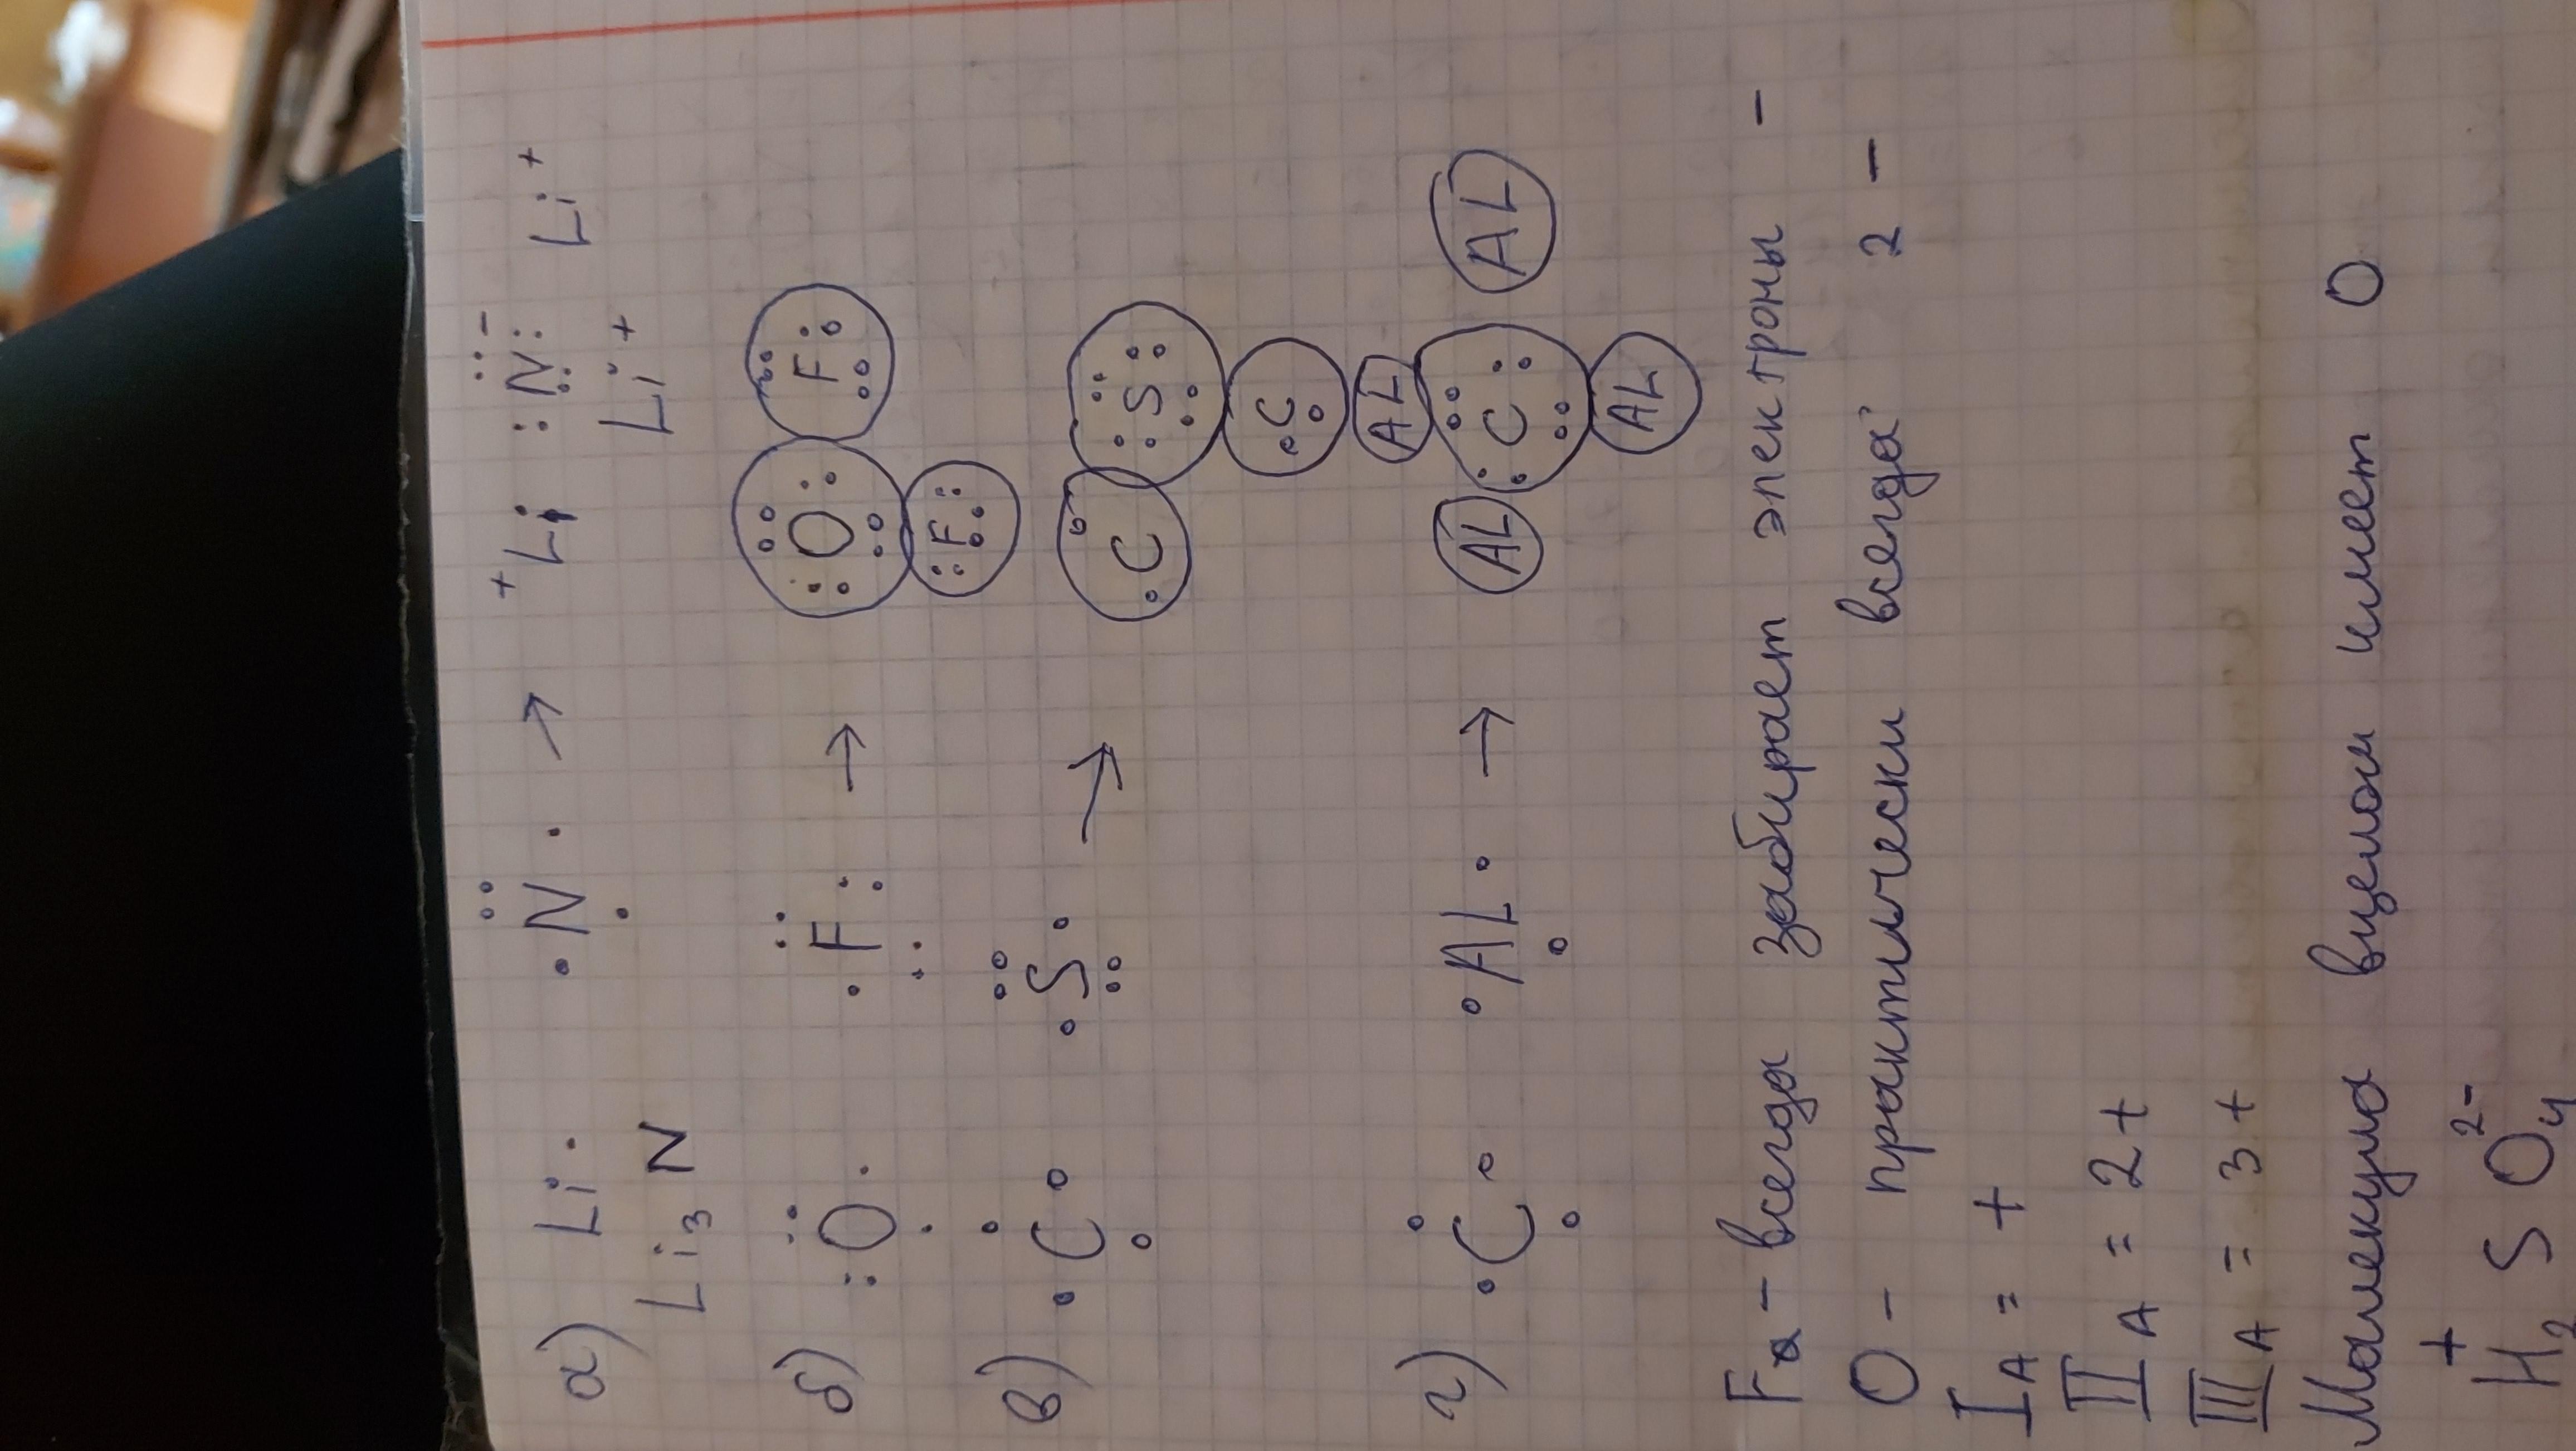 а) Li· ·N· → + Li :N: - Li +
Li₃N Li +
б) :O· ·F: → O F
F
в) ·C· ·S· → C S
C
AL
г) ·C· ·AL· → AL C AL
AL
F - всегда забирает электроны -
O - практически всегда 2 -
I A = +
II A = 2 +
III A = 3 +
Малекула вцелом имеет O
+ 2-
H₂ S O₄